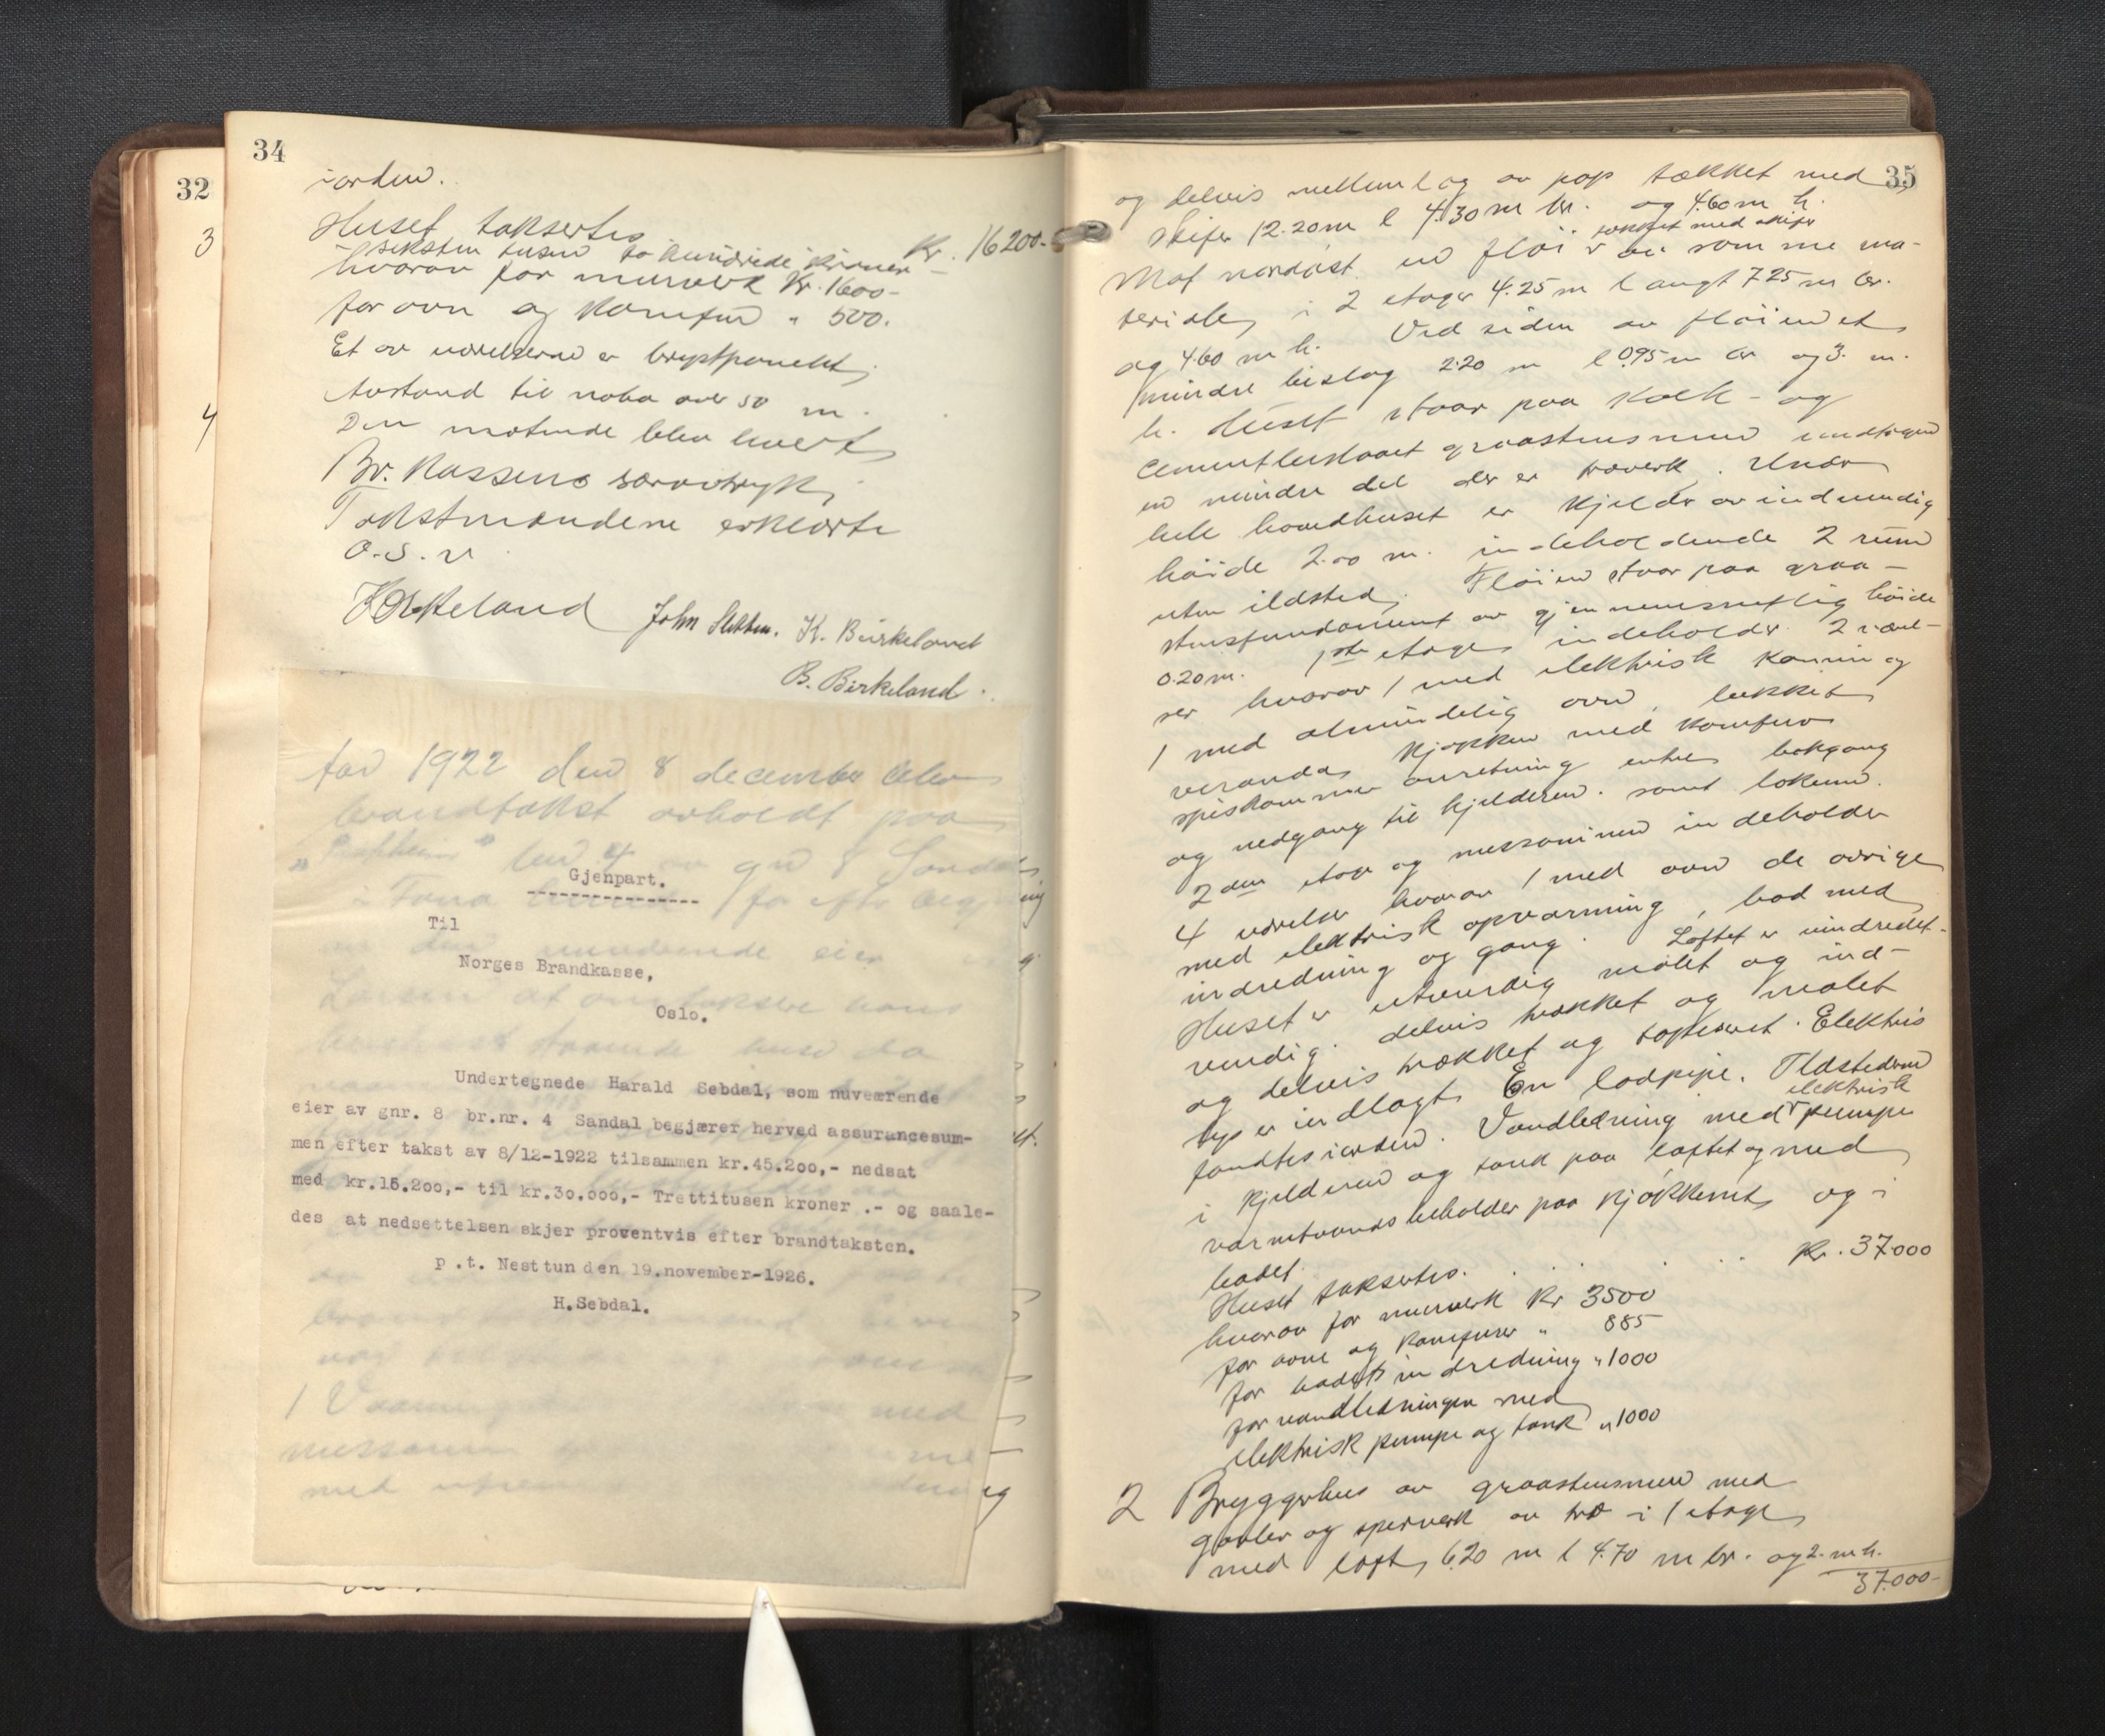 32
3
4
34
i orden.
Huset taksertes
seksten tusen to hundrede kroner
Kr. 16200.-
hvorav for murverk Kr. 1600-
for ovn og Komfur " 500.
Et av værelserne er brystpanelt,
Avstand til nabo over 50 m.
Den møtende blev levert
Br. Kassens særavtryk,
Takstmændene erklærte
o.s.v.
John Sletten. K. Birkeland
B. Birkeland.
Aar 1922 den 8 december blev
brandtakst avholdt paa
gn 8 Sandal
i Fana
Gjenpart.
Til
Norges Brandkasse,
Oslo.
Undertegnede Harald Sebdal, som nuværende
eier av gnr. 8 br.nr. 4 Sandal begjærer herved assurancesum-
men efter takst av 8/12-1922 tilsammen kr.45.200,- nedsat
med kr.15.200,- til kr.30.000,- Trettitusen kroner .- og saale-
des at nedsettelsen skjer proventvis efter brandtaksten.
p.t. Nesttun den 19.november-1926.
H.Sebdal.
35
og delvis mellemlag av pap tækket med
skifer 12.20 m l 4.30 m br. og 4.60 m h.
tækket med skifer
Mot nordøst en fløi av samme ma-
teriale, i 2 etager 4.25 m langt 7.25 m br.
og 4.60 m h. Ved siden av fløien et
mindre bislag 2.20 m l 0.95 m br og 3. m.
h. Huset staar paa kalk- og
cementberskaaet graastensmur undtagen
en mindre del der er træverk. Under
hele hovedhuset er kjelder av indvendig
høide 2.00 m. indeholdende 2 rum
uten ildsted. Fløien staar paa graa-
stensfundament av gjennemsnitlig høide
0.20 m. 1ste etage indeholder 2 værel-
ser hvorav 1 med elektrisk kamin og
1 med almindelig ovn, lukket
veranda, kjøkken med komfur
spiskammer anretning entre bakgang
og nedgang til kjelderen. samt lokum.
2den etage og messaninen indeholder
4 værelser hvorav 1 med ovn de øvrige
med elektrisk opvarming, bad med
indredning og gang. Loftet er uindredet.
Huset er utvendig malet og ind-
vendig delvis trækket og malet
og delvis trækket og tapseret. Elektris
lys er indlagt. En lodpipe. Ildstederne
fandtes i orden. Vandledning med elektrisk pumpe
i kjelderen og tank paa loftet og med
varmtvandsbeholder paa kjøkkenet og i
badet.
Huset taksertes. Kr. 37000
hvorav for murverk Kr 3500
for ovne og komfurer " 885
for badets indredning " 1000
for vandledningen med
elektrisk pumpe og tank " 1000
2 Bryggerhus av graastensmur med
gavler og sperverk av træ i 1 etage
med loft, 6.20 m l 4.70 m br. og 2. m h.
37.000-